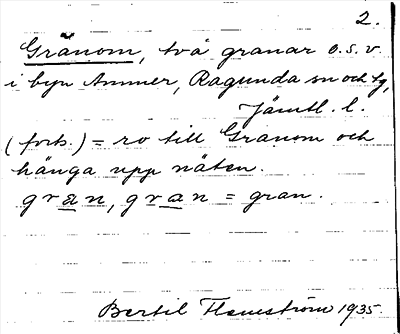 2.
Gränom, två granar o.s.v.
i byn Ammer, Ragunda sn och tg,
Jämtl. l.
(forts.) = ro till Granom och
hänga upp näten.
gran, gran = gran.
Bertil Flemström 1935.